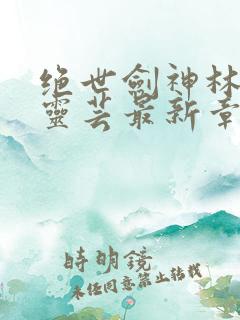 绝世剑神林
靈芸最新章
時明鏡
未经同意禁止转载